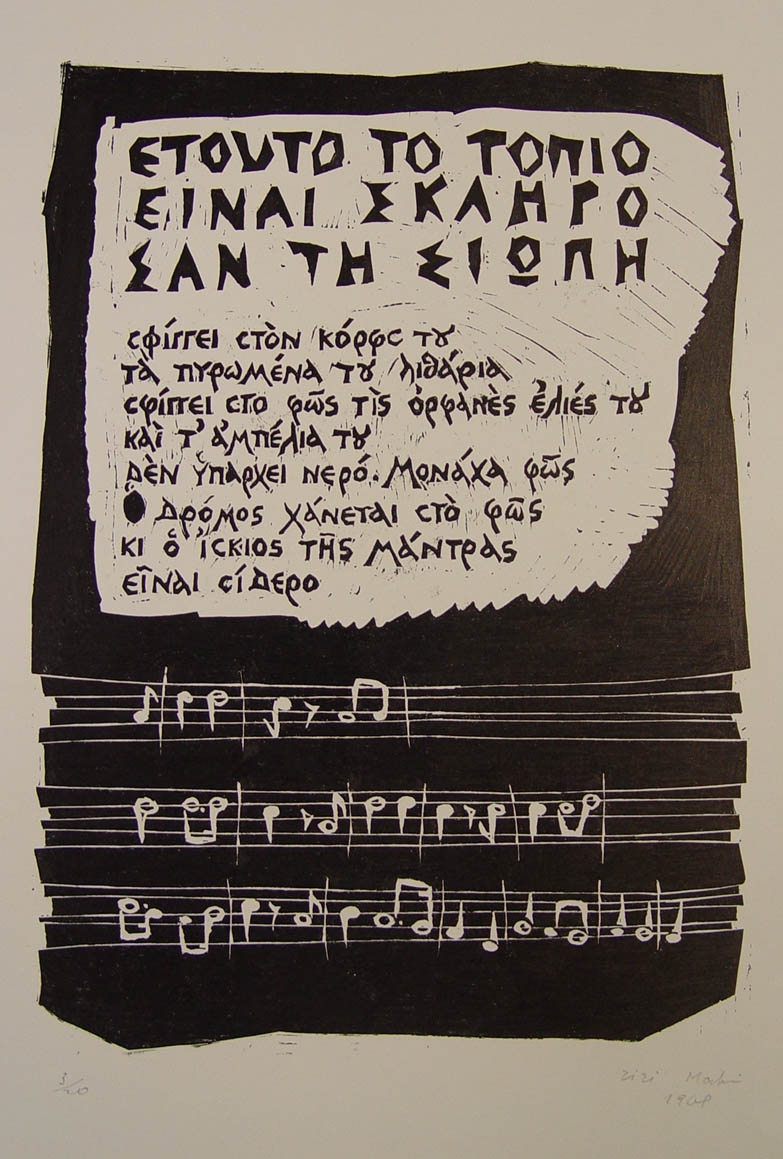 ΕΤΟΥΤΟ ΤΟ ΤΟΠΙΟ
ΕΙΝΑΙ ΣΚΛΗΡΟ
ΣΑΝ ΤΗ ΣΙΩΠΗ
σφίγγει στὸν κόρφο τȣ
τὰ πυρωμένα τȣ λιθάρια
σφίγγει στο φῶς τὶς ὀρφανὲς ἐλιές τȣ
καὶ τ' ἀμπέλια τȣ
Δὲν ὑπάρχει νερό. Μονάχα φῶς
Ὁ Δρόμος χάνεται στὸ φῶς
κι ὁ ἴσκιος τῆς μάντρας
εἶναι σίδερο
3/20